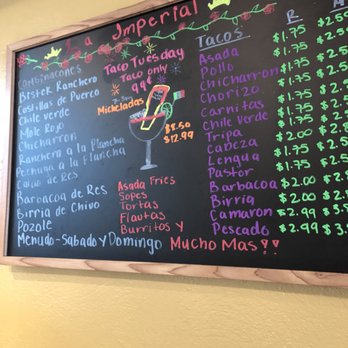 La Imperial
Combinaciones
Bistek Ranchero
Costillas de Puerco
Chile verde
Mole Rojo
Chicharron
Ranchera a la Plancha
Pechuga a la Plancha
Caldo de Res
Barbacoa de Res
Birria de Chivo
Pozole
Menudo-Sabado y Domingo
Taco Tuesday
Taco only
99¢
Micheladas
$8.50
$12.99
Asada Fries
Sopes
Tortas
Flautas
Burritos y
Mucho Mas!!
Tacos R
Asada $1.75
Pollo $1.75
Chicharron $1.75
Chorizo $1.75
Carnitas $1.75
Chile Verde $1.75
Tripa $2.00
Cabeza $1.75
Lengua $1.75
Pastor $1.75
Barbacoa $2.00
Birria $2.00
Camaron $2.99
Pescado $2.99